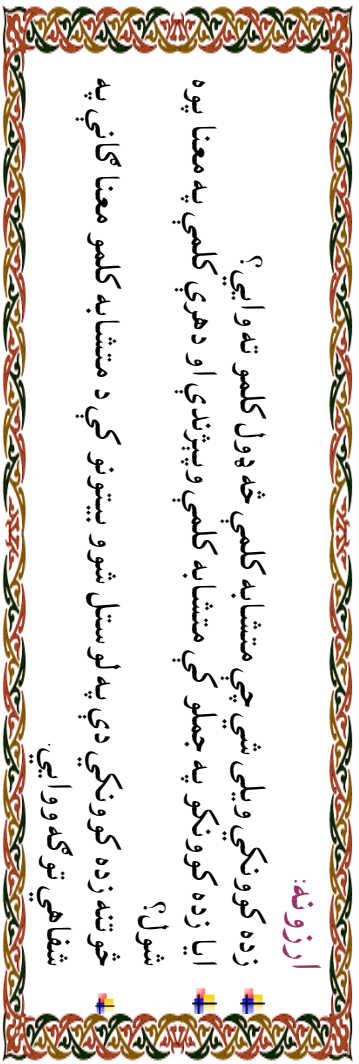 ارزونه:
زده کوونکي ویلی شي چې متشابه کلمې څه ډول کلمو ته وايي؟
ایا زده کوونکو په جملو کې متشابه کلمې وپېژندې او د هرې کلمې په معنا پوه
شول؟
څو تنه زده کوونکي دې په لوستل شوو بیتونو کې د متشابه کلمو معنا ګانې په
شفاهي توګه ووايي.